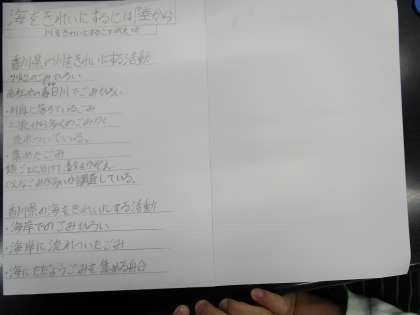 海をきれいにするには「陸から」
川をきれいにすることが大切
香川県の川をきれいにする活動
ごみひろい
春日川でごみひろい
・川岸に落ちているごみ
上流から多くのごみが
流れついている。
・集めたごみ
種るいごとに分けて
どんなごみが多いか調査している。
香川県の海をきれいにする活動
・海岸でのごみひろい
・海岸に流れついたごみ
・海にただようごみを集める船